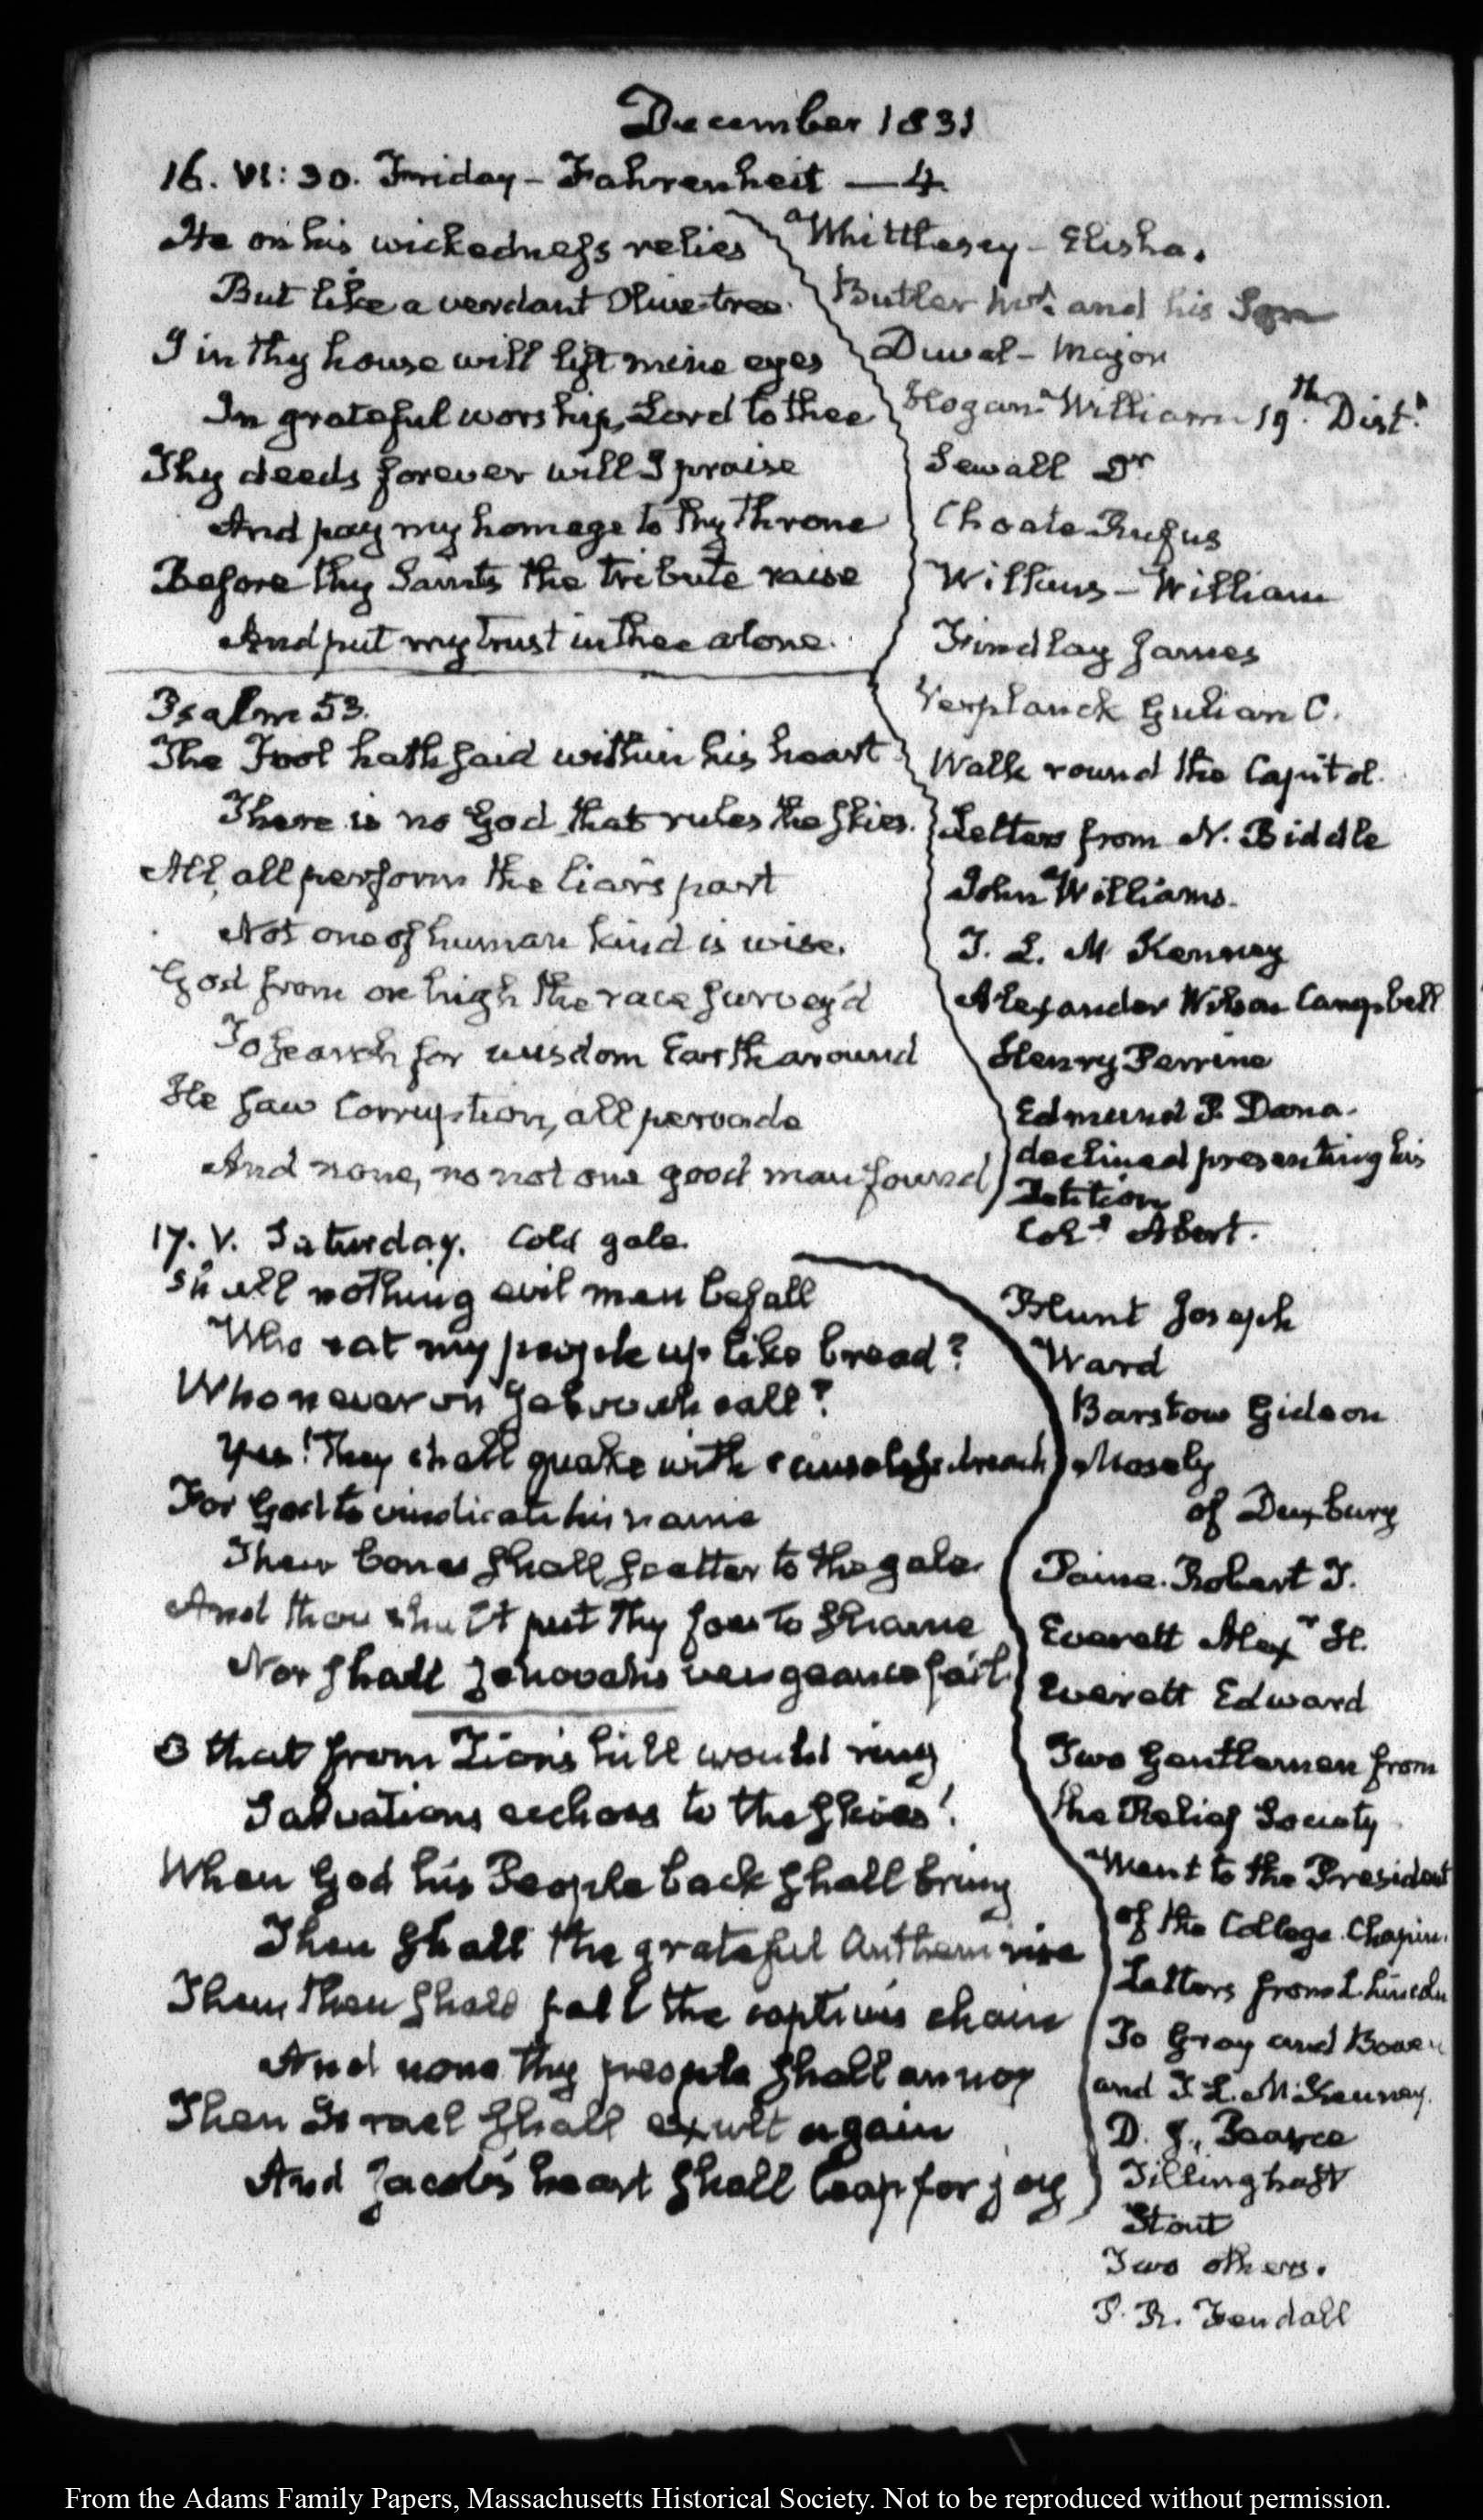 December 1831
16. VI: 30. Friday - Fahrenheit — 4.
He on his wickedness relies
But like a verdant Olive tree.
I in thy house will lift mine eyes
In grateful worship, Lord to thee
Thy deeds forever will I praise
And pay my homage to thy Throne
Before thy Saints the tribute raise
And put my trust in thee alone.
Whittlesey - Elisha.
Butler Mr. and his Son
Duval - Major
Hogan - William 19th. Dist.
Sewall Dr
Choate Rufus
Wilkins - William
Findlay James
Verplanck Gulian C.
Walk round the Capitol.
Letters from N. Biddle
John Williams.
T. L. M Kenney
Alexander Wilson Campbell
Henry Perrine
Edmund P. Dana.
declined presenting his
Petition
Coll Abert.
Psalm 53.
The Fool hath said within his heart
There is no God that rules the skies.
All, all perform the liar's part
Not one of human kind is wise.
God from on high the race survey'd
To search for wisdom Earth around
He saw Corruption, all pervade
And none, no not one good man found
17. V. Saturday. Cold gale.
Shall nothing evil men befall
Who eat my people up like bread?
Who never on Jehovah call?
Yes! They shall quake with causeless dread
For God to vindicate his name
Their bones shall scatter to the gale.
And thou shalt put thy foes to shame
Nor shall Jehovah's vengeance fail.
O that from Zion's hill would ring
Salvations echoes to the skies!
When God his People back shall bring
Then shall the grateful Anthem rise
Then, then shall fall the captive's chain
And none thy people shall annoy
Then Israel shall exult again
And Jacob's heart shall leap for joy
Blunt Joseph
Ward
Barstow Gideon
Mosely
of Duxbury
Paine. Robert T.
Everett Alexr H.
Everett Edward
Two Gentlemen from
the Relief Society
Went to the President
of the College. Chapin.
Letters from L. Lincoln
To Gray and Bowen
and T. L. McKenney.
D. J. Pearce
Tillinghast
Stout
Two others.
P. R. Fendall
From the Adams Family Papers, Massachusetts Historical Society. Not to be reproduced without permission.